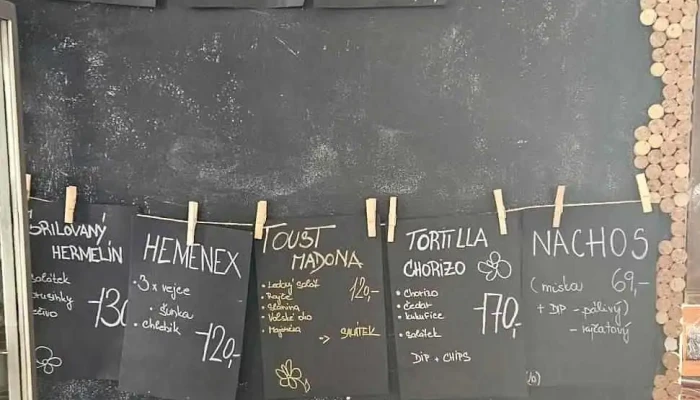 GRILOVANÝ
HERMELÍN
salátek
brusinky
130
HEMENEX
• 3 x vejce
• šunka
• chlebík
120,-
TOUST
MADONA
• Ledový salát
• Rajče
• Slanina
• Volské oko
• Majonéza
120,-
-> SALÁTEK
TORTILLA
CHORIZO
• Chorizo
• čedar
• kukuřice
• salátek
170,-
DIP + CHIPS
NACHOS
(miska 69,-
+ DIP - pálivý)
- rajčatový